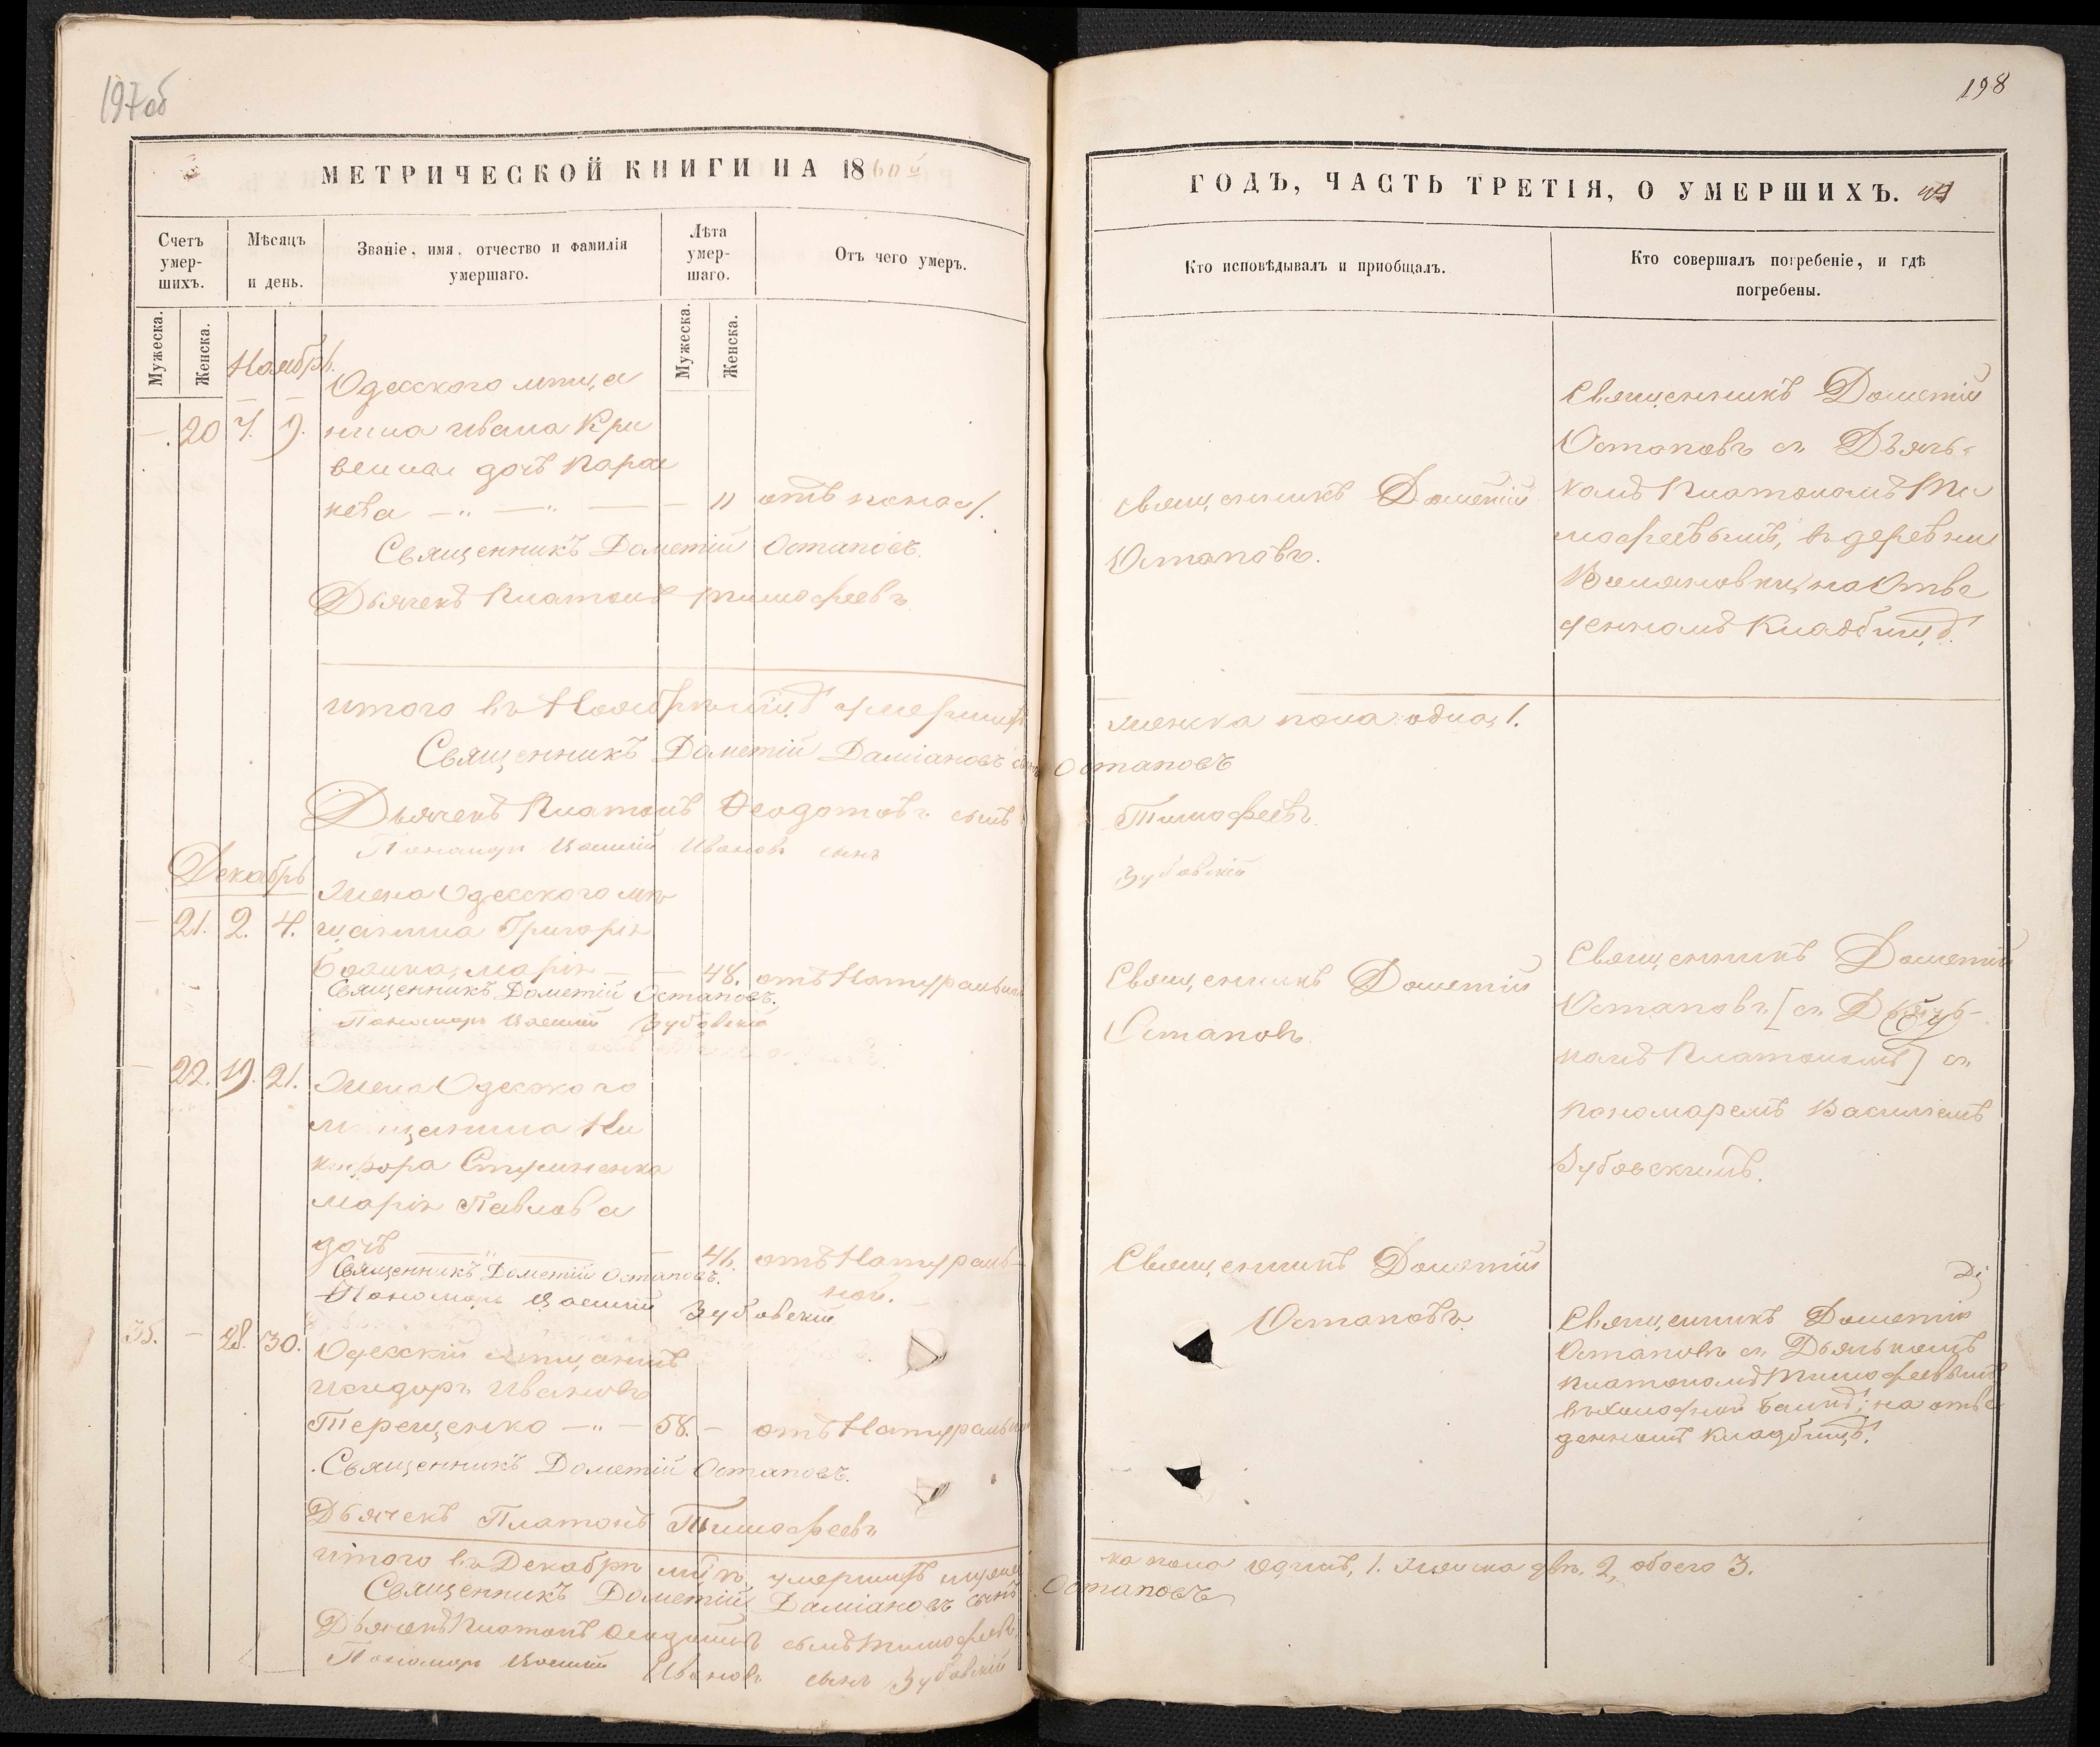 197об
МЕТРИЧЕСКОЙ КНИГИ НА 1860й
Счетъ умер-шихъ.
Мѣсяцъ и день.
Званіе, имя, отчество и фамилія умершаго.
Лѣта умер-шаго.
Отъ чего умеръ.
Мужеска.
Женска.
Мужеска.
Женска.
Ноябрь.
Одесского мѣща
-. 20 7. 9. нина Ивана Кри
дочь Парас
кева — — — 11 отъ
Священникъ Дометій Остаповъ.
Дьячекъ Платонъ Тимофеевъ
итого въ Ноябрѣ м-цѣ умершихъ
Священникъ Дометій Даміановъ сынъ
Дьячекъ Платонъ Феодотовъ сынъ
Пономарь Василій Ивановъ сынъ
Декабрь
Жена Одесского мѣ
— 21. 2. 4. щанина Григорія
Марія — — 48. отъ Натуральной
Священникъ Дометій Остаповъ.
Пономарь Василій Зубовскій
— 22. 19. 21. Жена Одесского
мѣщанина Ни
кифора
Марія Павлова
дочь — — — 41. отъ Натураль-
ной.
Священникъ Дометій Остаповъ.
Пономарь Василій Зубовскій
— 28. 30. Одесскій мѣщанинъ
Исидоръ Ивановъ
Терещенко — — 58. — отъ Натуральной
Священникъ Дометій Остаповъ.
Дьячекъ Платонъ Тимофеевъ
итого въ Декабрѣ м-цѣ умершихъ мужес
Священникъ Дометій Даміановъ сынъ
Дьячекъ Платонъ Феодотовъ сынъ Тимофеевъ
Пономарь Василій Ивановъ сынъ Зубовскій
198
ГОДЪ, ЧАСТЬ ТРЕТІЯ, О УМЕРШИХЪ.
Кто исповѣдывалъ и приобщалъ.
Кто совершалъ погребеніе, и гдѣ погребены.
Священникъ Дометій
Остаповъ.
Священникъ Дометій
Остаповъ съ Дьячь-
комъ Платономъ Ти
мофеевымъ, въ деревни
на Отве
денномъ Кладбищѣ.
женска пола одна, 1.
Остаповъ
Тимофеевъ.
Зубовскій
Священникъ Дометій
Остаповъ.
Священникъ Дометій
Остаповъ [съ Дьячь-
комъ Платономъ] съ
пономаремъ Василіемъ
Зубовскимъ.
Священникъ Дометій
Остаповъ.
Священникъ Дометій
Остаповъ съ Дьячькомъ
Платономъ Тимофеевымъ
въ Холодной Балкѣ; на отве
денномъ кладбищѣ.
ка пола одинъ, 1. женска двѣ. 2, обоего 3.
Остаповъ